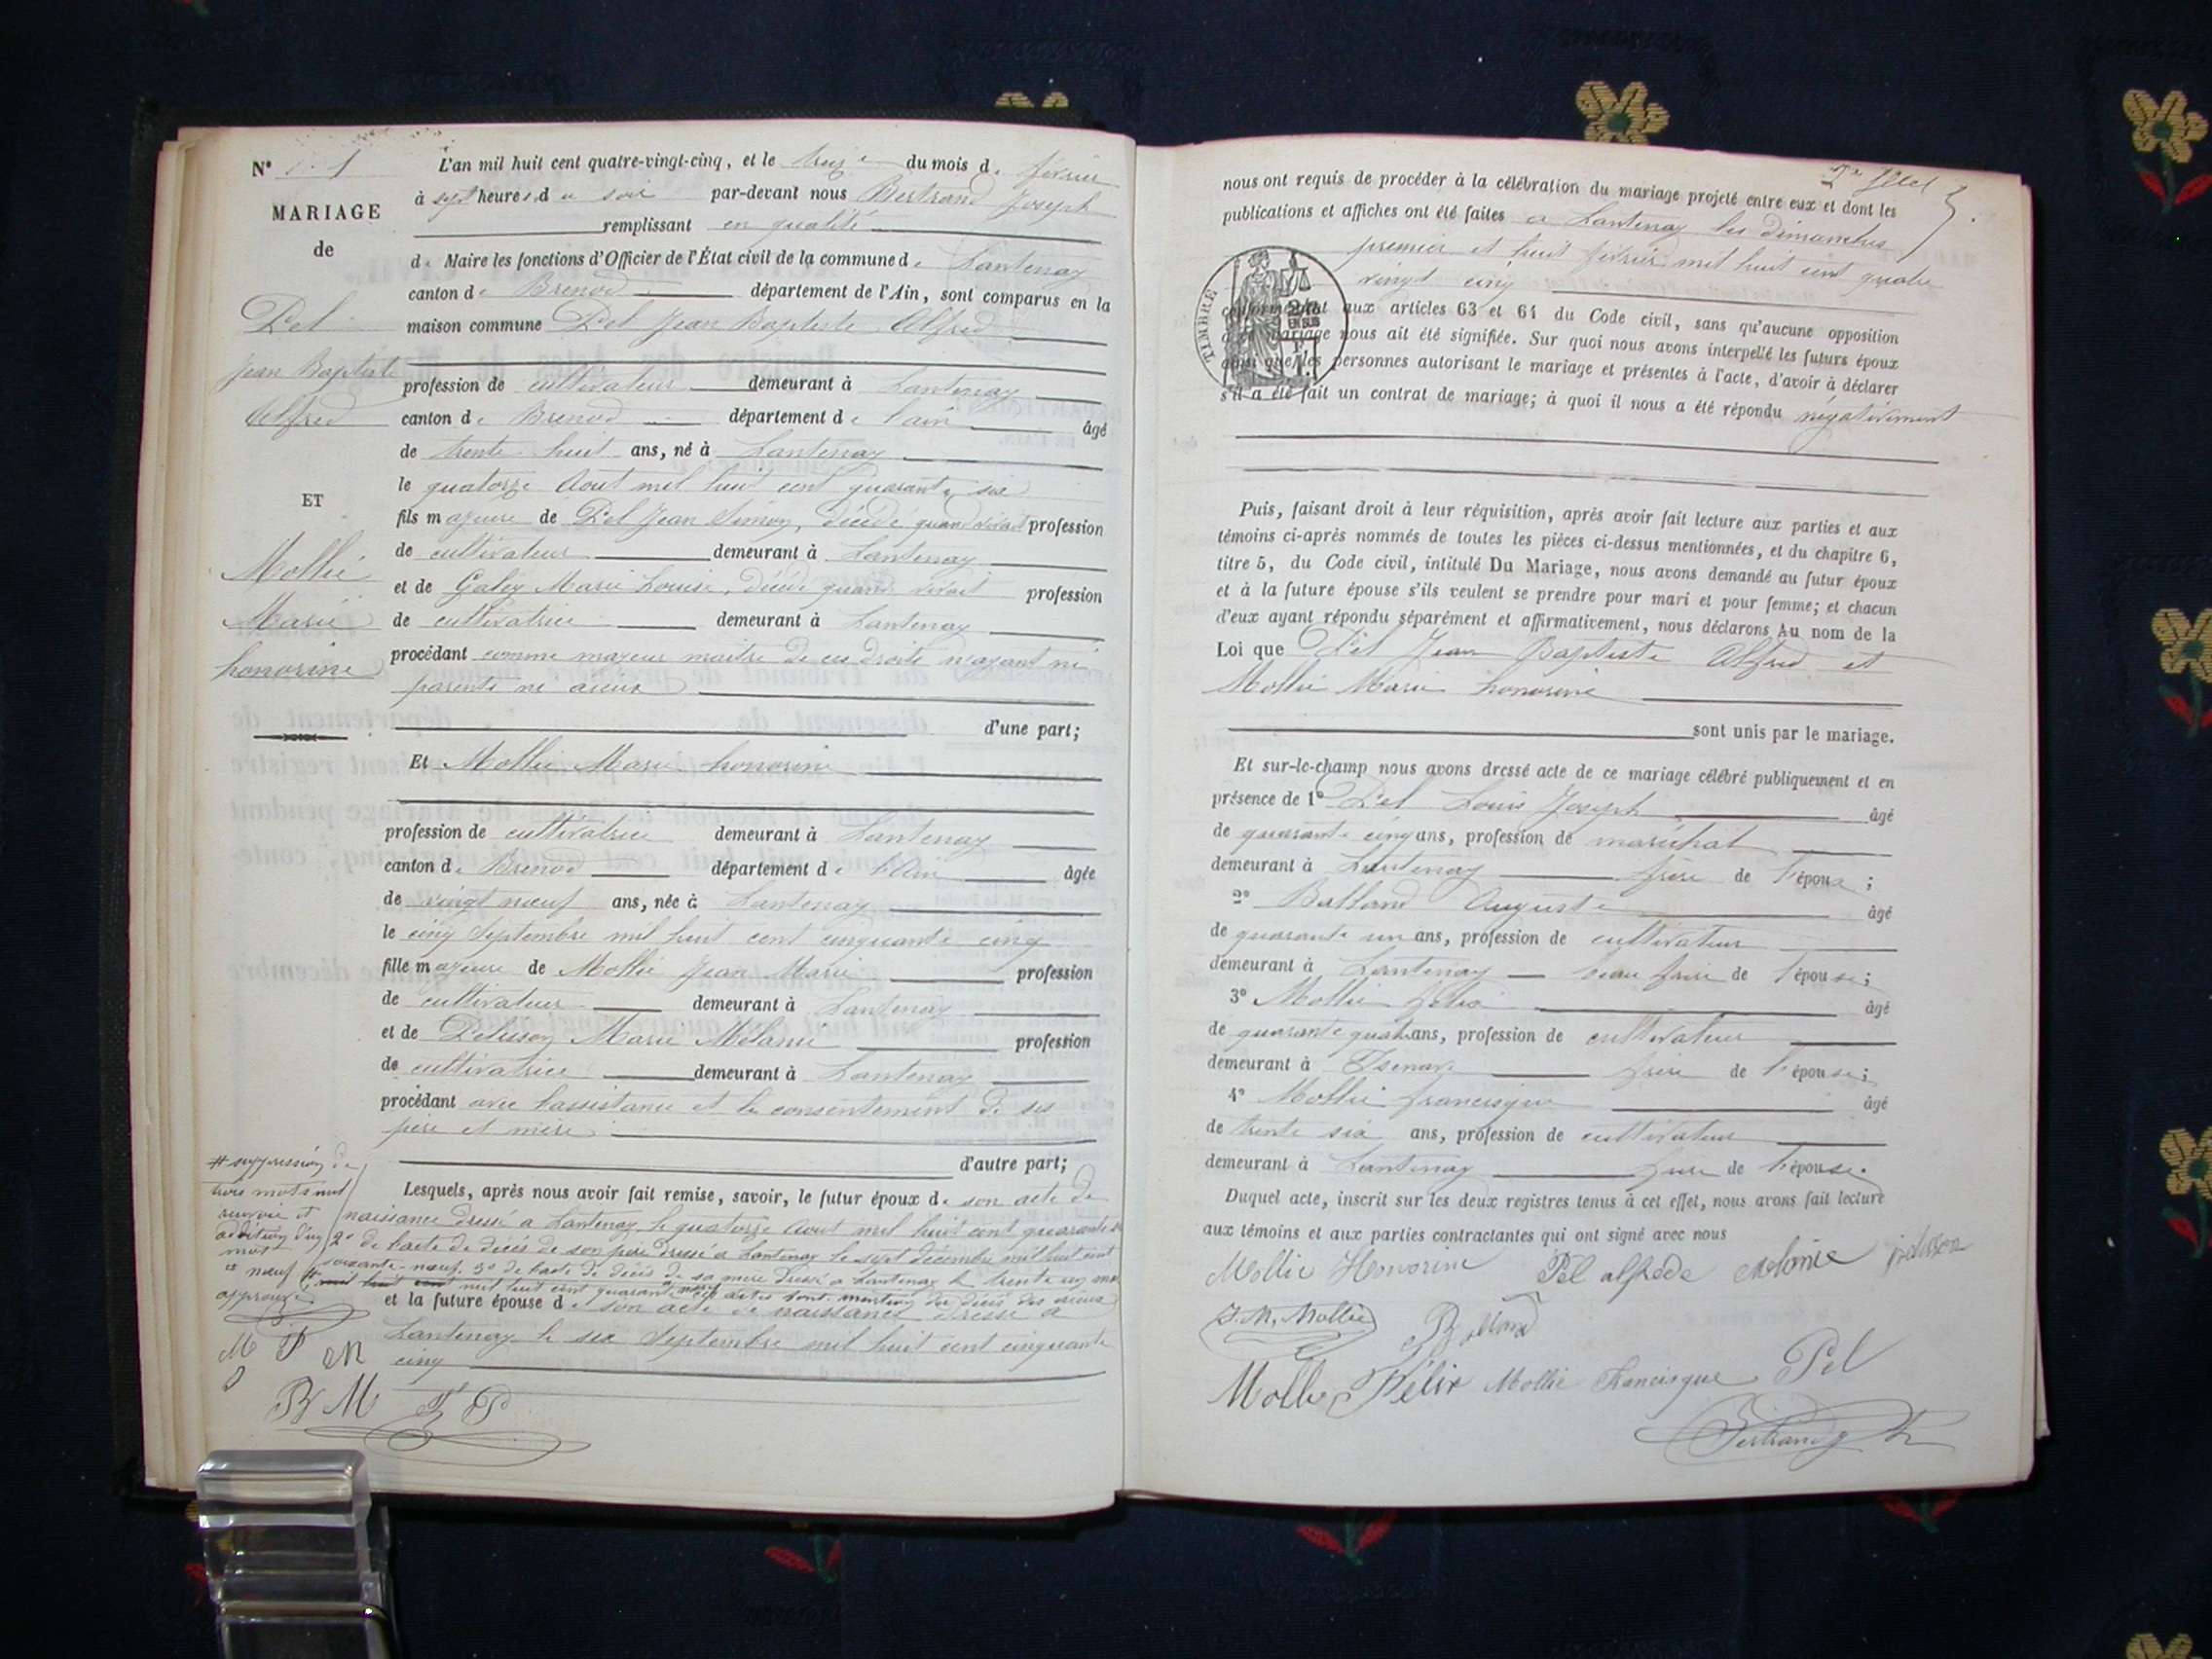 N° 1
MARIAGE
de
Pel
Jean Baptiste
Alfred
ET
Mollie
Marie
honorine
L'an mil huit cent quatre-vingt-cinq, et le treize du mois de février
à sept heures du soir par-devant nous Bertrand Joseph
remplissant en qualité
de Maire les fonctions d'Officier de l'État civil de la commune de Lantenay
canton de Brenod département de l'Ain, sont comparus en la
maison commune Pel Jean Baptiste Alfred
profession de cultivateur demeurant à Lantenay
canton de Brenod département de l'ain âgé
de trente huit ans, né à Lantenay
le quatorze Aout mil huit cent quarante six
fils majeur de Pel Jean Simon, décédé quand vivait profession
de cultivateur demeurant à Lantenay
et de Galey Marie Louise, décédé quand vivait profession
de cultivatrice demeurant à Lantenay
procédant comme majeur maitre de ces droits n'ayant ni
parents ni aieux
d'une part;
Et Mollie Marie honorine
profession de cultivatrice demeurant à Lantenay
canton de Brenod département de l'Ain âgée
de vingt neuf ans, née à Lantenay
le cinq Septembre mil huit cent cinquante cinq
fille majeure de Mollie Jean Marie profession
de cultivateur demeurant à Lantenay
et de Pelisson Marie Mélanie profession
de cultivatrice demeurant à Lantenay
procédant avec l'assistance et le consentement de ses
père et mère
d'autre part;
Lesquels, après nous avoir fait remise, savoir, le futur époux de son acte de
naissance dressé a Lantenay le quatorze Aout mil huit cent quarante six
2° de l'acte de décès de son père dressé a Lantenay le sept décembre mil huit cent
soixante-neuf. 3° de l'acte de décès de sa mère dressé a Lantenay le trente un mai
mil huit cent mil huit cent quarante neuf actes font mention du décès des aieux
et la future épouse de son acte de naissance dressé a
Lantenay le six Septembre mil huit cent cinquante
cinq
# suppression de
trois mots nul
renvoi et
addition d'un
mot
neuf #
approuvé
M P M
B M F P
nous ont requis de procéder à la célébration du mariage projeté entre eux et dont les
publications et affiches ont été faites a Lantenay les dimanches
premier et huit février mil huit cent quatre
vingt cinq
TIMBRE
conformément aux articles 63 et 64 du Code civil, sans qu'aucune opposition
à ce mariage nous ait été signifiée. Sur quoi nous avons interpellé les futurs époux
ainsi que les personnes autorisant le mariage et présentes à l'acte, d'avoir à déclarer
s'il a été fait un contrat de mariage; à quoi il nous a été répondu négativement
Puis, faisant droit à leur réquisition, après avoir fait lecture aux parties et aux
témoins ci-après nommés de toutes les pièces ci-dessus mentionnées, et du chapitre 6,
titre 5, du Code civil, intitulé Du Mariage, nous avons demandé au futur époux
et à la future épouse s'ils veulent se prendre pour mari et pour femme; et chacun
d'eux ayant répondu séparément et affirmativement, nous déclarons Au nom de la
Loi que Pel Jean Baptiste Alfred et
Mollie Marie honorine
sont unis par le mariage.
Et sur-le-champ nous avons dressé acte de ce mariage célébré publiquement et en
présence de 1° Pel Louis Joseph âgé
de quarante cinq ans, profession de maréchal
demeurant à Lantenay frère de l'époux;
2° Balland Auguste âgé
de quarante un ans, profession de cultivateur
demeurant à Lantenay beau frère de l'épouse;
3° Mollie félix âgé
de quarante quatre ans, profession de cultivateur
demeurant à Izenave frère de l'épouse;
4° Mollie francisque âgé
de trente six ans, profession de cultivateur
demeurant à Lantenay frère de l'épouse.
Duquel acte, inscrit sur les deux registres tenus à cet effet, nous avons fait lecture
aux témoins et aux parties contractantes qui ont signé avec nous
Mollie Honorine Pel alfrede Melanie pelisson
J. M. Mollie Balland
Mollie Félix Mollie Francisque Pel
Bertrand